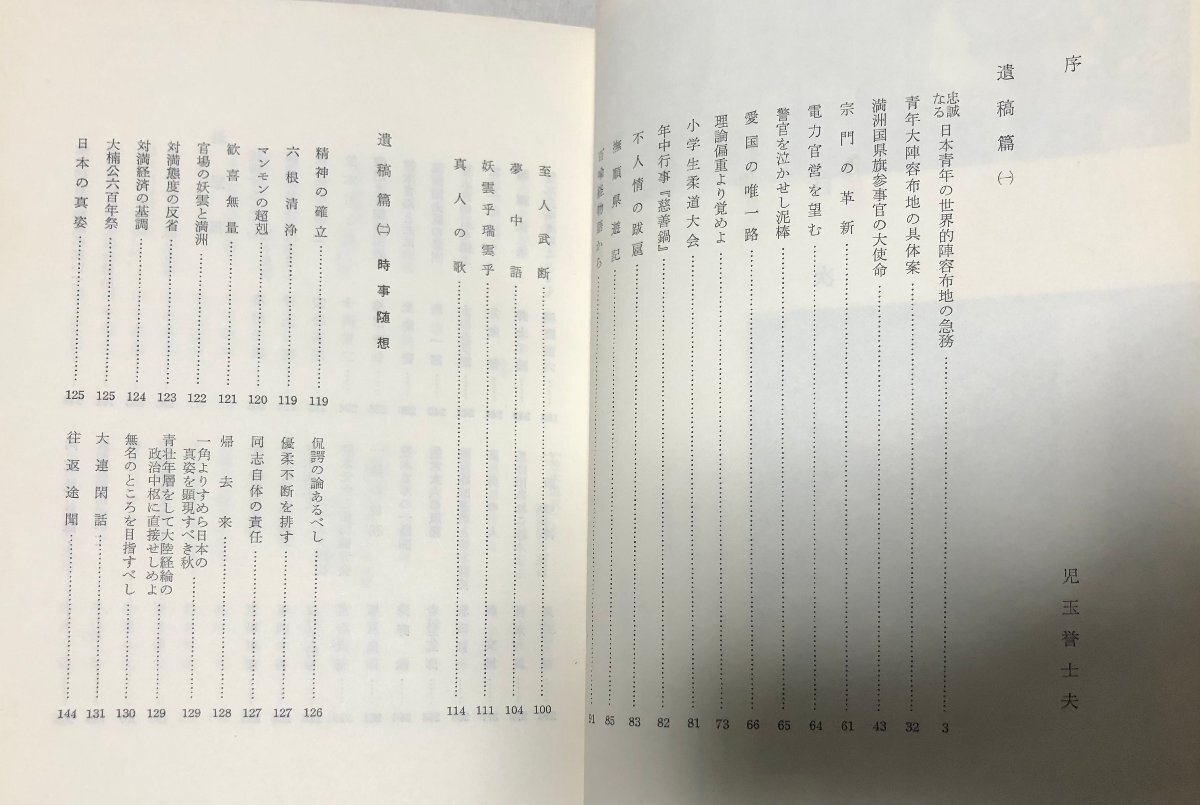 序 児玉誉士夫
遺稿篇 ㈠
忠誠なる 日本青年の世界的陣容布地の急務 3
青年大陣容布地の具体案 32
満洲国県旗参事官の大使命 43
宗門の革新 61
電力官営を望む 64
警官を泣かせし泥棒 65
愛国の唯一路 66
理論偏重より覚めよ 73
小学生柔道大会 81
年中行事『慈善鍋』 82
不人情の跋扈 83
撫順県遊記 85
から 91
至人武断 100
夢中語 104
妖雲乎瑞雲乎 111
真人の歌 114
遺稿篇 ㈡ 時事随想
精神の確立 119
六根清浄 119
マンモンの超剋 120
歓喜無量 121
官場の妖雲と満洲 122
対満態度の反省 123
対満経済の基調 124
大楠公六百年祭 125
日本の真姿 125
侃諤の論あるべし 126
優柔不断を排す 127
同志自体の責任 127
帰去来 128
一角よりすめら日本の
真姿を顕現すべき秋 129
青壮年層をして大陸経綸の
政治中枢に直接せしめよ 129
無名のところを目指すべし 130
大連閑話 131
往返途聞 144